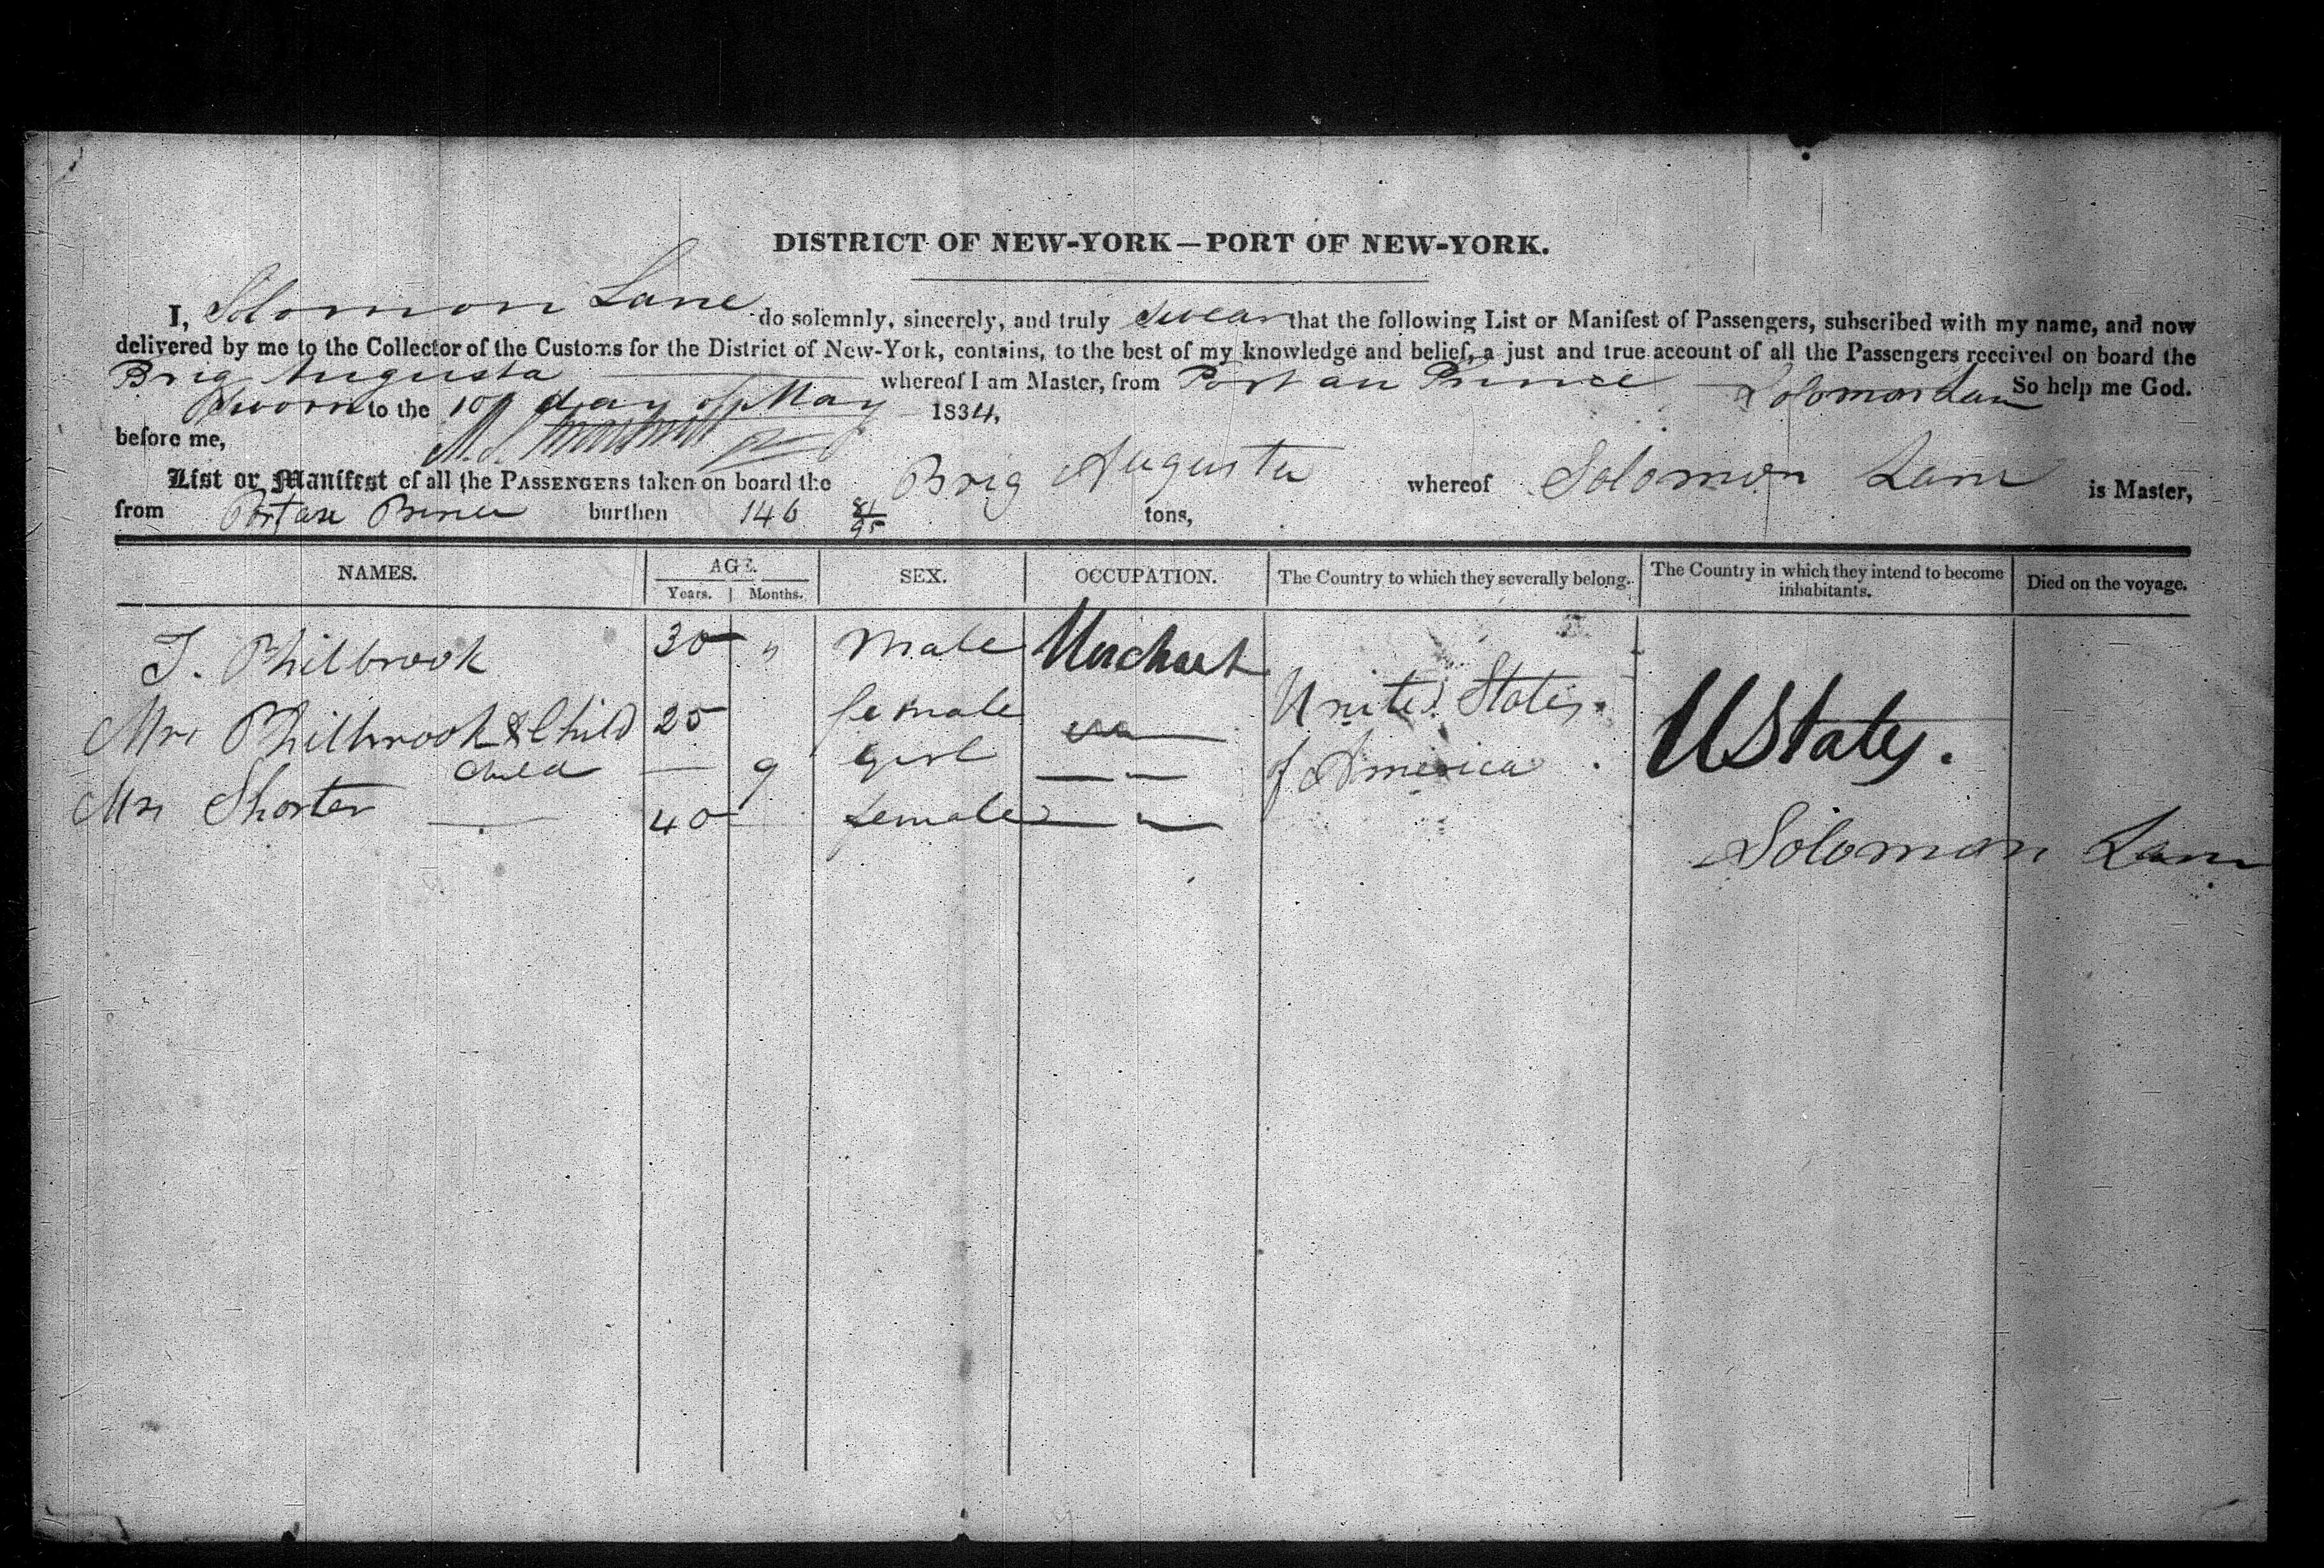 DISTRICT OF NEW-YORK—PORT OF NEW-YORK.
I, Solomon Lane do solemnly, sincerely, and truly swear that the following List or Manifest of Passengers, subscribed with my name, and now
delivered by me to the Collector of the Customs for the District of New-York, contains, to the best of my knowledge and belief, a just and true account of all the Passengers received on board the
Brig Augusta whereof I am Master, from Port au Prince So help me God.
Sworn to the 10 day of May 1834, Solomon Lane
before me,
List or Manifest of all the PASSENGERS taken on board the Brig Augusta whereof Solomon Lane is Master,
from Port au Prince burthen 146 81/95 tons,
NAMES. AGE. SEX. OCCUPATION. The Country to which they severally belong. The Country in which they intend to become inhabitants. Died on the voyage.
Years. Months.
T. Philbrook 30 " Male Merchant
Mrs Philbrook & Child 25 female United States
Child — 9 girl — — of America . UStates.
Mrs Shorter — 40 female — —
Solomon Lane